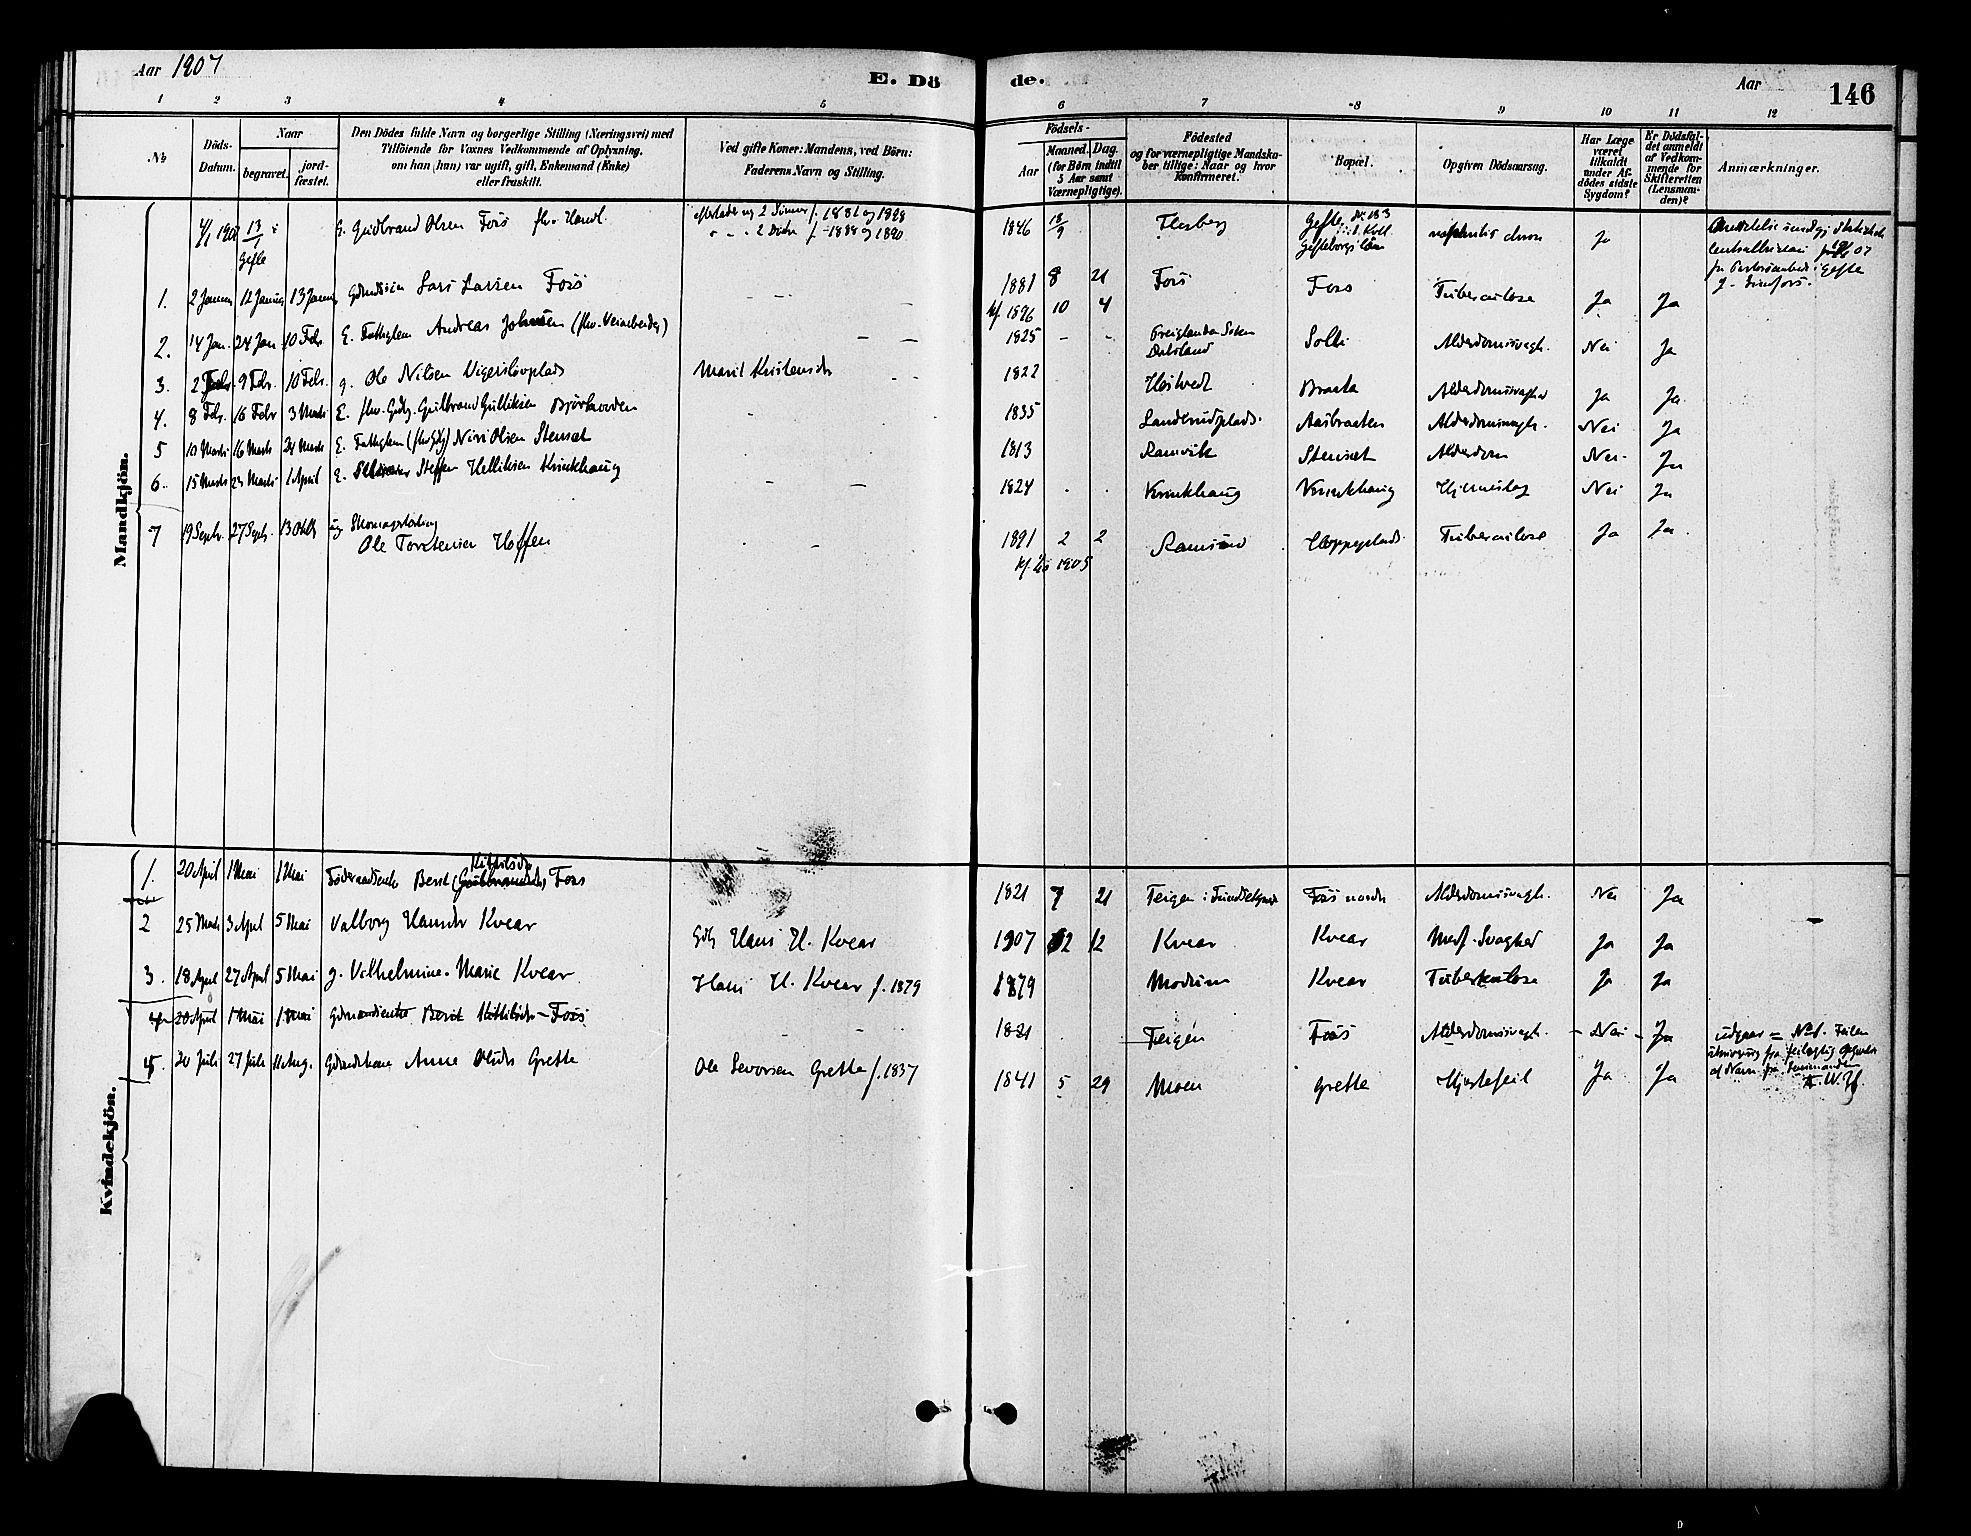 Aar 1907
E. Dö
de.
Aar
146
1 2 3 4 5 6 7 8 9 10 11 12
No
Döds-
Datum.
Naar
begravet.
jord-
fæstet.
Den Dödes fulde Navn og borgerlige Stilling (Næringsvei) med
Tilföiende for Voxnes Vedkommende af Oplysning.
om han (hun) var ugift, gift, Enkemand (Enke)
eller fraskilt.
Ved gifte Koner: Mandens, ved Börn:
Faderens Navn og Stilling.
Födsels-
Aar
Maaned. Dag.
(for Börn indtil
5 Aar samt
Værnepligtige).
Födested
og for værnepligtige Mandska-
ber tillige: Naar og hvor
Konfirmeret.
Bopæl.
Opgiven Dödsaarsag.
Har Læge
været
tilkaldt
under Af-
dödes sidste
Sygdom?
Er Dödsfal-
det anmeldt
af Vedkom-
mende for
Skifteretten
(Lensman-
den)?
Anmærkninger.
Mandkjön.
13/1
Gefle
G. Gudbrand Olsen Foss fhv. Handl.
efterlader sig 2 Sönner f. 1881 og 1898
2 Dötre f. 1888 og 1890
1846 18/9 Flesberg Gefle No 183
Gefleborgs Län
Ja
1. 2 Januar 12 Januar 13 Januar Lars Larsen Foss 1881 8 21 Foss Foss Tuberculose Ja Ja
kf. 1896 10 4
2. 14 Jan. 24 Jan 10 Febr. E. Fattiglem Andreas Johnsen (fhv. Veiarbeider) 1825 - - Dalsland Solli Alderdomssvagh. Nei Ja
3. 2 Febr. 9 Febr. 10 Febr. g. Ole Nilsen Vigerslovplads Marit Kristensdr 1822 Höstvedt Braata Alderdomssvaghed Ja Ja
4. 8 Febr. 16 Febr 3 Marts E. fhv. Gbg. Gulbrand Gulliksen Björkaaden 1835 Landerudplads. Aasbraaten Alderdomssvagh. Nei Ja
5 10 Marts 16 Marts 24 Marts E. Fattiglem (fhv Gbg) Niri Olsen Stensæt 1813 Ramvik Stensæt Alderdom Nei Ja
6. 15 Marts 23 Marts 1 April E. Steffen Helliksen Krinkhaug 1824 Krinkhaug Krinkhaug Hjerneslag Nei Ja
7 19 Septr. 27 Septr. 13 Oktbr ug Skomagerlærling
Ole Torstensen Hoffen 1891 2 2 Ramsund Hoppeplads Tuberculose Ja Ja
1905
Kvindekjön.
1. 20 April 1 Mai 1 Mai Föderaadsenke Berit Kittilsdr Foss 1821 7 21 Teigen Foss nordre Alderdomssvagh. Nei Ja
2 25 Marts 3 April 5 Mai Valborg Hansdr Kvear Gbr Hans H. Kvear 1907 2 12 Kvear Kvear Medf. Svaghed Ja Ja
3. 18 April 27 April 5 Mai g. Vilhelmine Marie Kvear Hans H. Kvear f. 1879 1879 Modum Kvear Tuberkulose Ja Ja
4 20 April 1 Mai 1 Mai Gdmandsenke Berit Kittilsdr Foss 1821 Teigen Foss Alderdomssvagh. - Nei - Ja udgaar = No 1. Feilen
feilagtig Opgave
af Navn fra Lensmanden
5. 20 Juli 27 Juli 11 Aug. Gdmandskone Anne Olsdr Grette Ole Sevorsen Grette f. 1837 1841 5 29 Moen Grette Hjertefeil Ja Ja